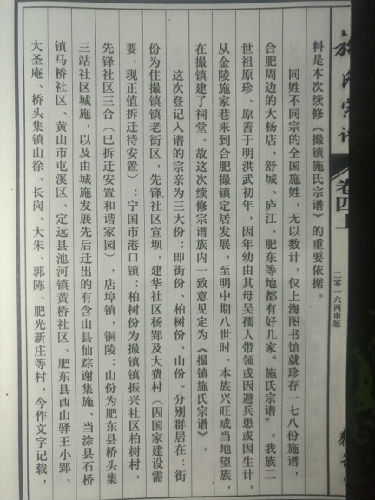 施氏宗谱
卷四上
二零一六丙申版
料是本次续修《撮镇施氏宗谱》的重要依据。
同姓不同宗的全国施姓，无以数计，仅上海图书馆就珍存一七八份施谱，
合肥周边的大杨店、舒城、庐江、肥东等地都有好几家。施氏宗谱》。我族二
世祖原珍、原善于明洪武初年，因年幼由其母吴孺人带领或因避兵患或因生计，
从金陵施家巷来到合肥撮镇定居发展，至明中期八世时，本族兴旺成当地望族，
在撮镇建了祠堂。故这次续修宗谱族内一致意见定为《撮镇施氏宗谱》。
这次登记入谱的宗亲为三大份：即街份、柏树份、山份。分别群居在：街
份为住撮镇镇老街区，先锋社区宣坝，建华社区杨郢及大费村（因国家建设需
要，现正值拆迁待安置）；宁国市港口镇：柏树份为撮镇镇振兴社区柏树村，
先锋社区三合（已拆迁安置和谐家园），店埠镇，铜陵：山份为肥东县桥头集
三站社区城施，以及由城施发展先后迁出的有含山县仙踪谢集施、当涂县石桥
镇马桥社区、黄山市屯溪区、定远县池河镇黄桥社区、肥东县四山驿王小郢、
大圣庵、桥头集镇山徐、长岗、大朱、郭陈、肥光新庄等村，今作文字记载，